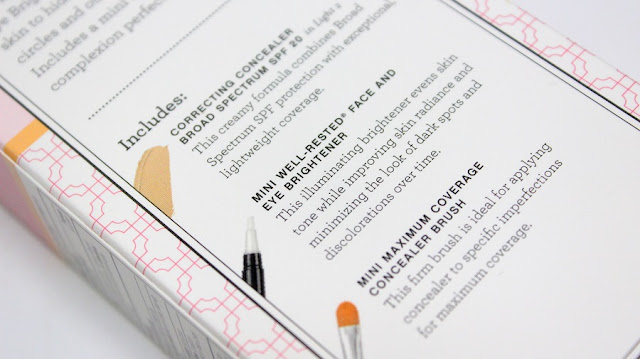 skin to
circles and
Includes a mini
complexion
Includes:
CORRECTING CONCEALER
BROAD SPECTRUM SPF 20 in Light 2
This creamy formula combines Broad
Spectrum SPF protection with exceptional,
lightweight coverage.
MINI WELL-RESTED® FACE AND
EYE BRIGHTENER
This illuminating brightener evens skin
tone while improving skin radiance and
minimizing the look of dark spots and
discolorations over time.
MINI MAXIMUM COVERAGE
CONCEALER BRUSH
This firm brush is ideal for applying
concealer to specific imperfections
for maximum coverage.